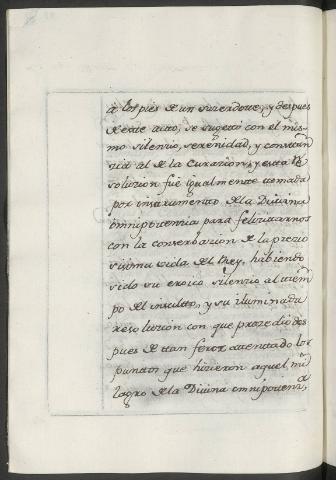 á los pies de un sazerdote, y despues
de este acto, se sugettó con el mis-
mo silenzio, serenidad, y constan
zia al de la Curazion, y esta Re
soluzion fué igualmente tomada
por instrumento de la Divina
omnipotenzia para felizitarnos
con la conservazion de la prezio
sisima vida del Rey, habiendo
sido su eroico silenzio al tiem
po del insulto, y su iluminada
resoluzion con que prozedio des
pues de tan feroz attentado los
puntos que hizieron aquel mi
lagro de la Divina omnipotenzia